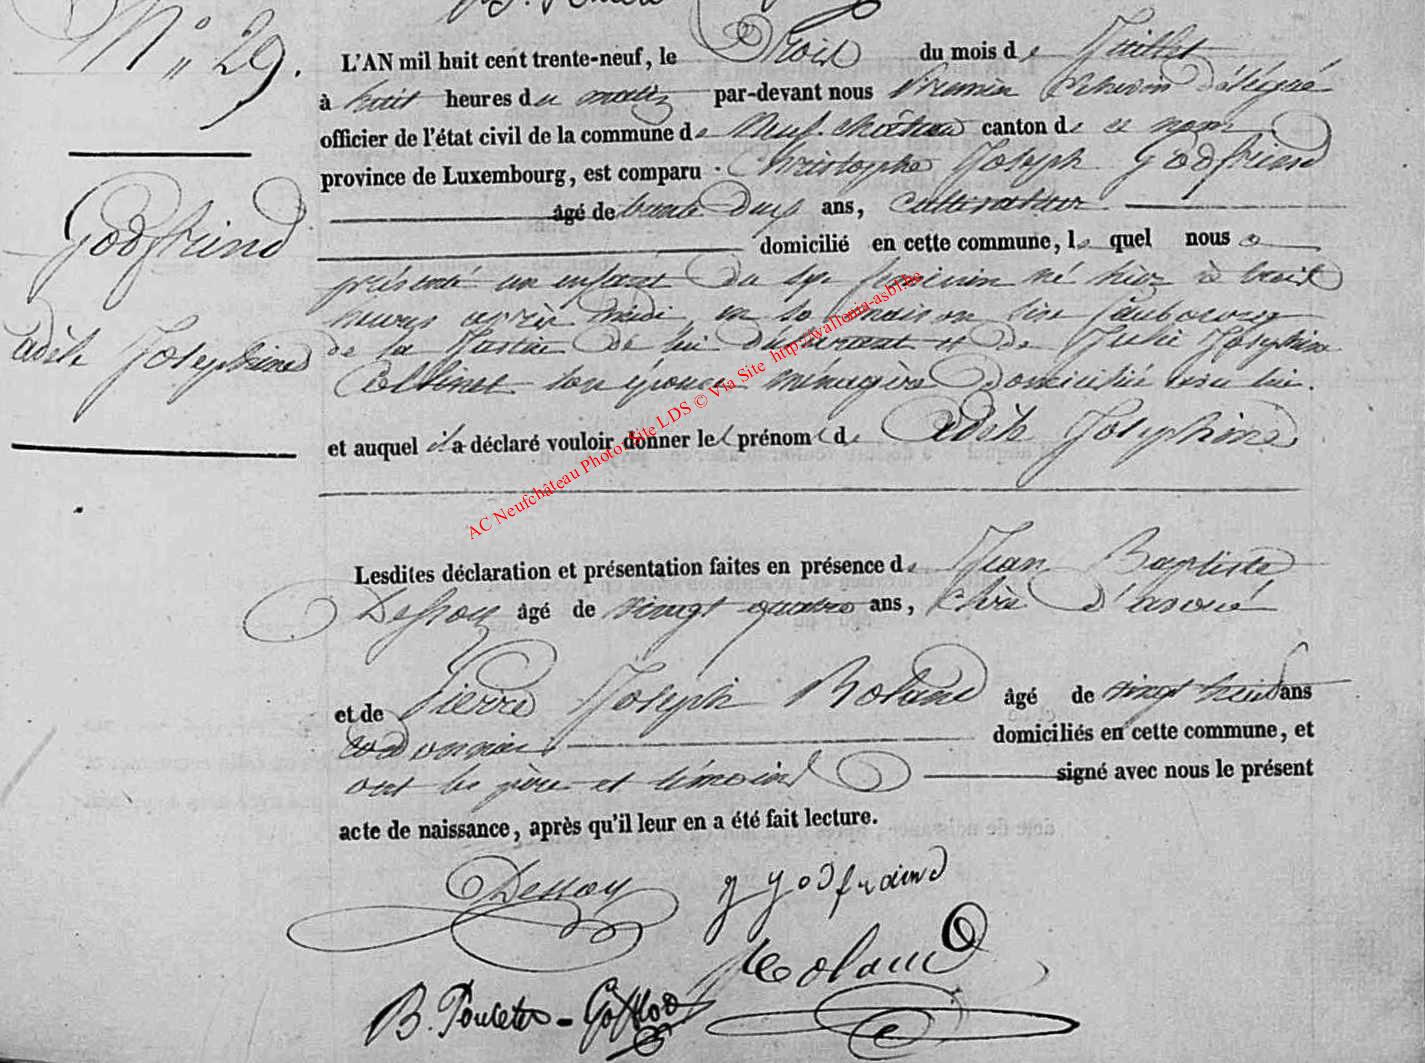 N° 29.
L'AN mil huit cent trente-neuf, le Trois du mois de Juillet
à huit heures du matin par-devant nous Premier Echevin délégué
officier de l'état civil de la commune de Neufchâteau canton de ce nom
province de Luxembourg, est comparu Christophe Joseph Godfriend
âgé de trente deux ans, cultivateur
domicilié en cette commune, lequel nous a
présenté un enfant du sexe feminin né hier à huit
heures après midi, en sa maison sise faubourg
de la Justice de lui déclarant et de Julie Josephine
Collinet son épouse ménagère domiciliée avec lui.
et auquel il a déclaré vouloir donner le prénom de Adèle Josephine
Godfriend
Adèle Josephine
Lesdites déclaration et présentation faites en présence de Jean Baptiste
Dessoy âgé de vingt quatre ans, clerc d'avoué
et de Pierre Joseph Roland âgé de vingt huit ans
cordonnier domiciliés en cette commune, et
ont les père et témoins signé avec nous le présent
acte de naissance, après qu'il leur en a été fait lecture.
Dessoy J J Godfraind
Roland
B. Poncelet-
AC Neufchâteau Photo Site LDS © Via Site http://wallonia-asbl.be